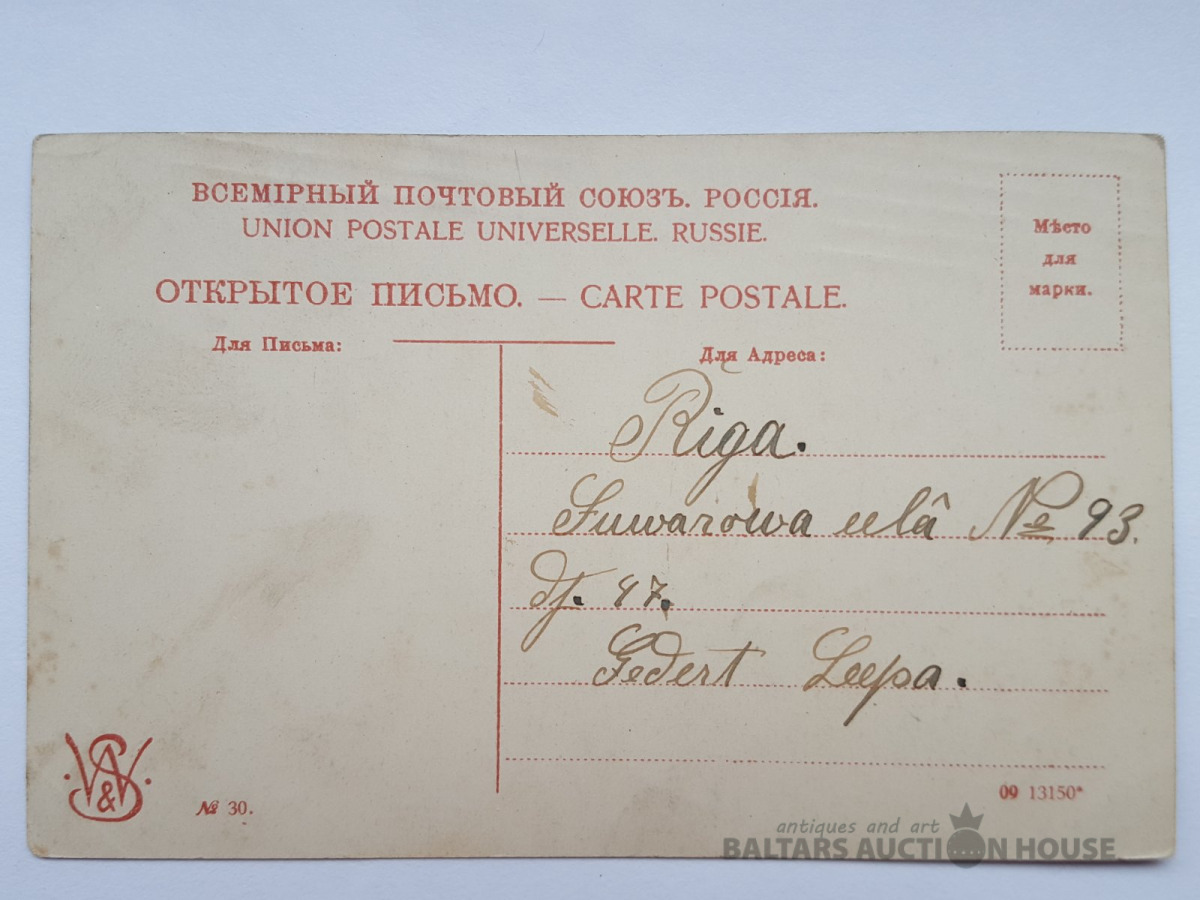 ВСЕМІРНЫЙ ПОЧТОВЫЙ СОЮЗЪ. РОССІЯ.
UNION POSTALE UNIVERSELLE. RUSSIE.
ОТКРЫТОЕ ПИСЬМО. — CARTE POSTALE.
Мѣсто
для
марки.
Для Письма:
Для Адреса:
Riga.
Suwarowa eelâ № 93.
dz. 47.
Gedert Leepa.
№ 30.
09 13150*
antiques and art
BALTARS AUCTION HOUSE